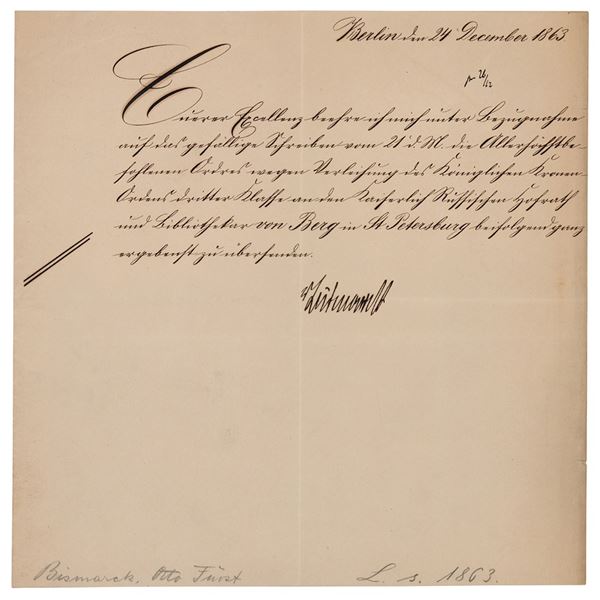 Berlin den 24 December 1863.
26/12
Euerer Excellenz beehre ich mich unter Bezugnahme
auf das gefällige Schreiben vom 21 d. M. die Allerhöchstbe-
fohlenen Ordres wegen Verleihung des Königlichen Kronen
Ordens dritter Klasse an den Kaiserlich Russischen Hofrath
und Bibliothekar von Berg in St Petersburg beifolgend ganz
ergebenst zu übersenden.
Bismarck, Otto Fürst
L. s. 1863.